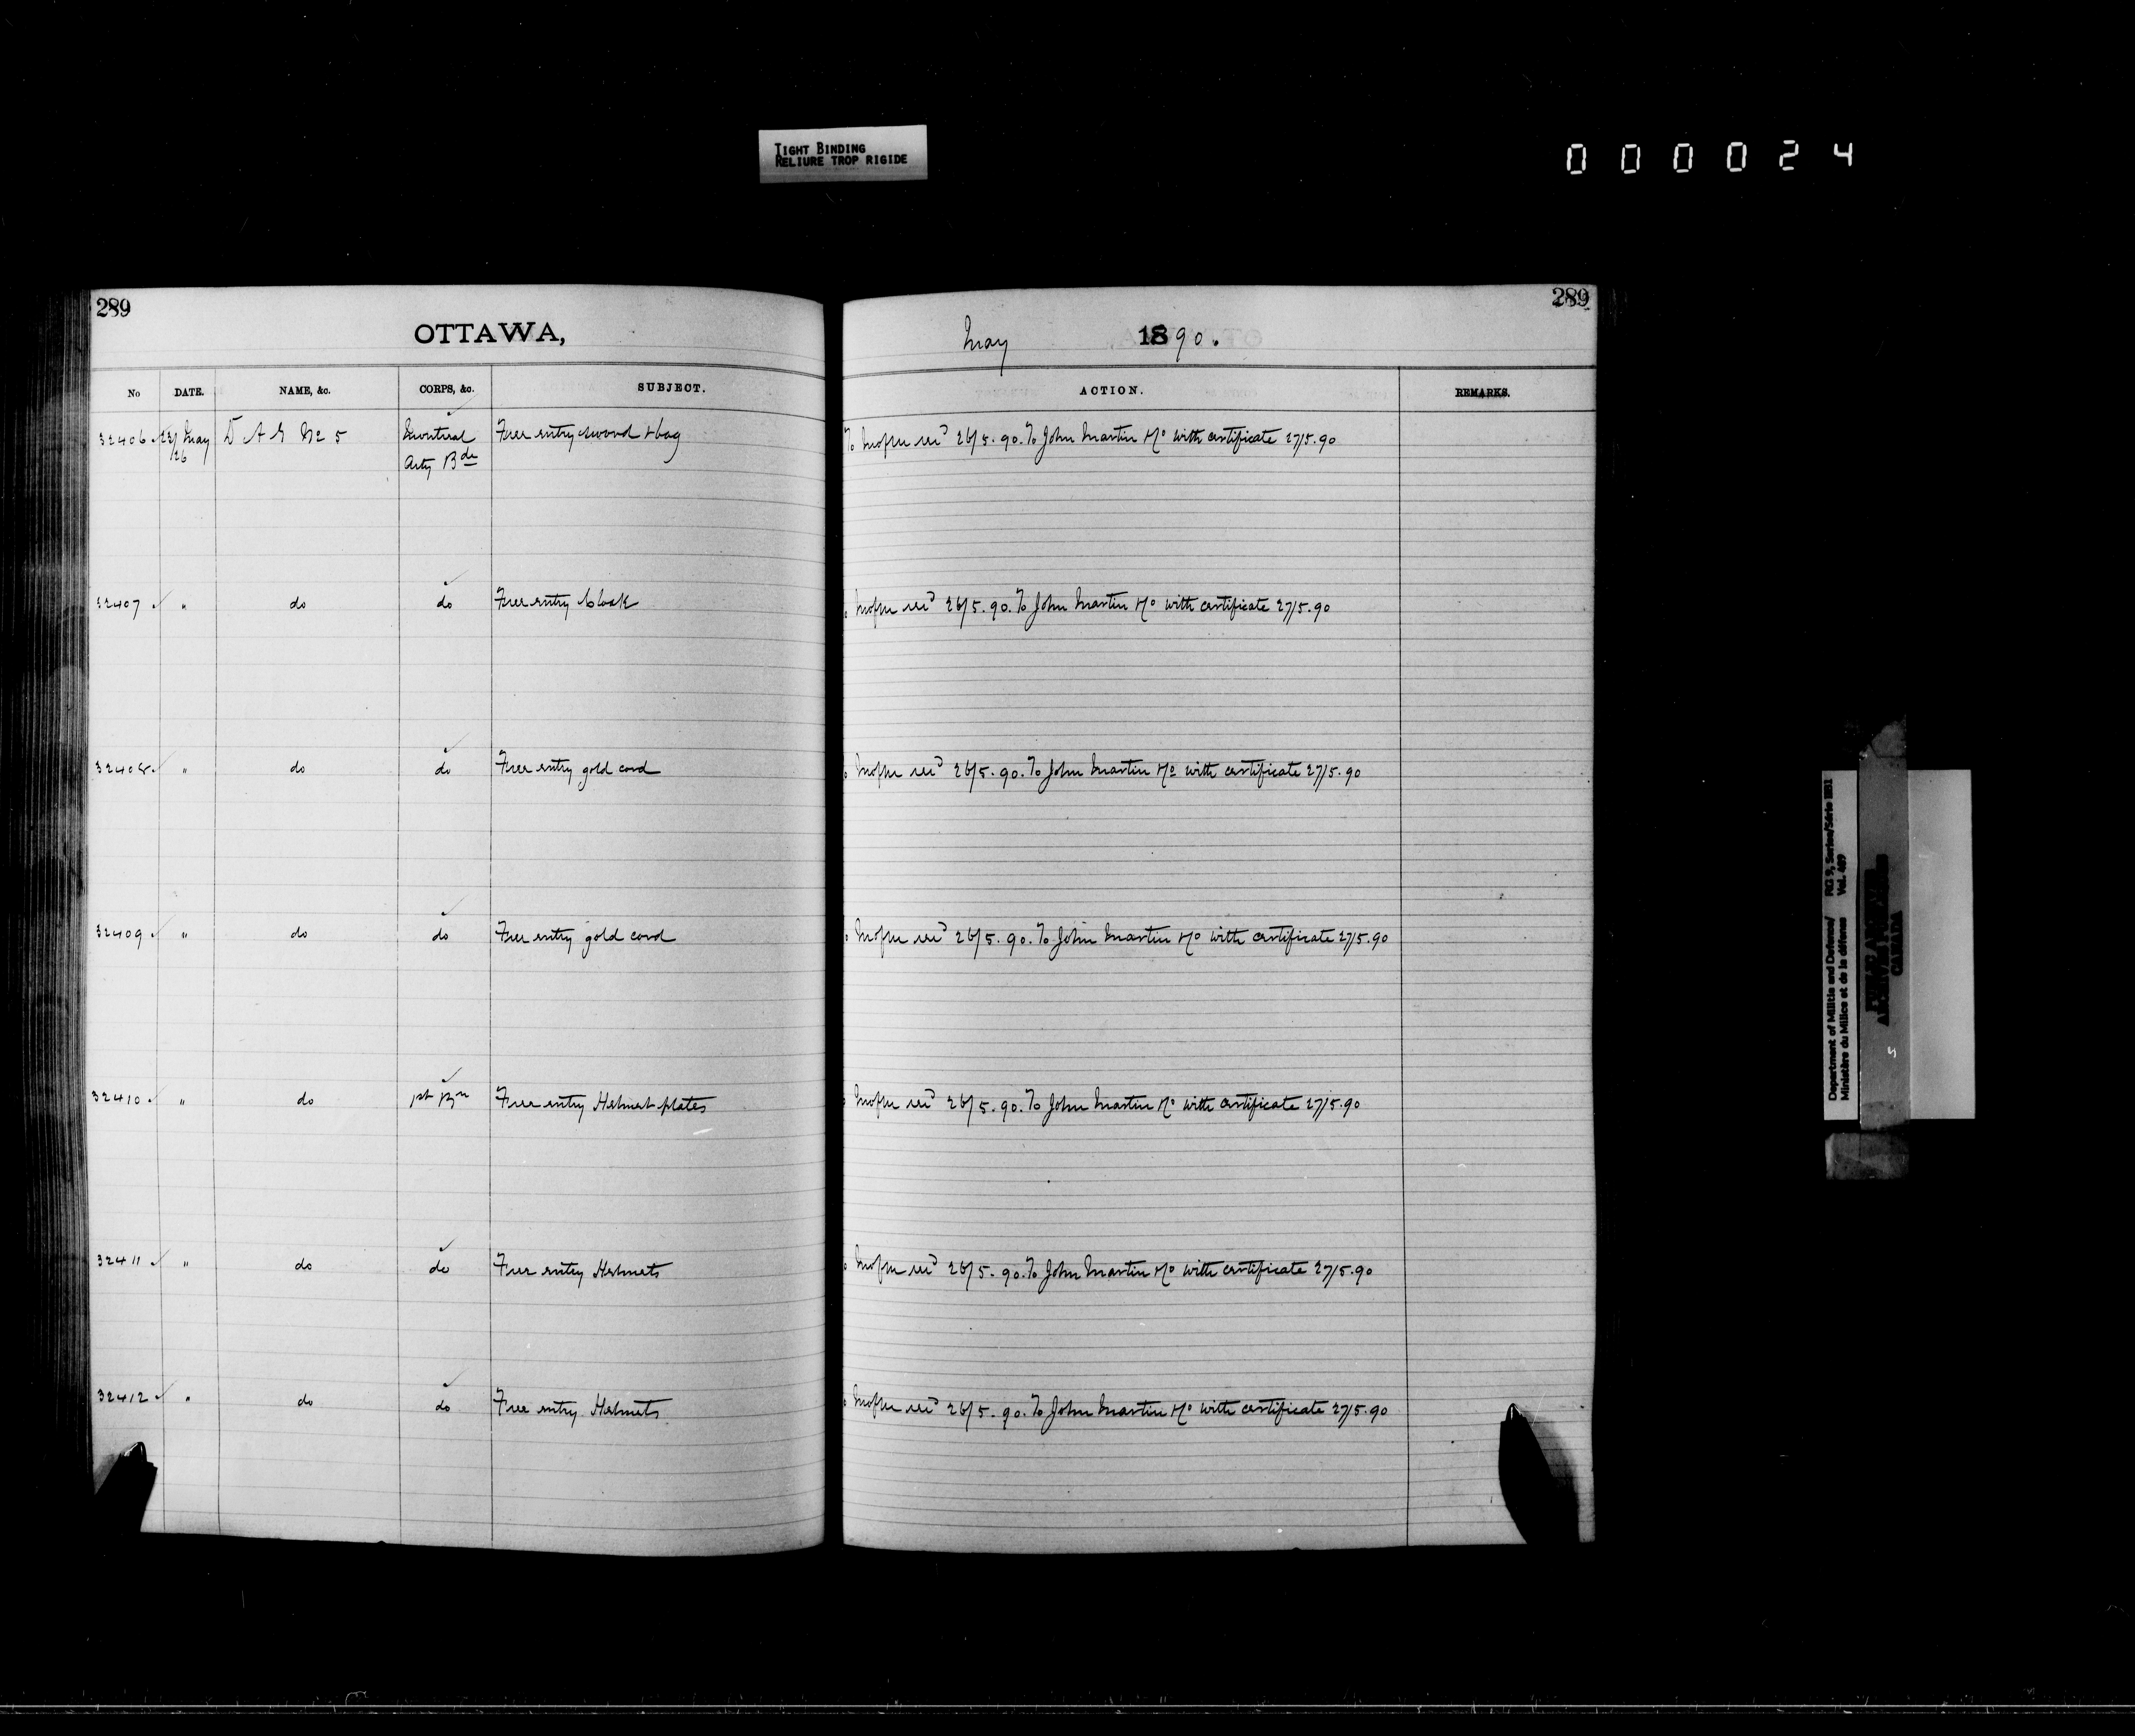 TIGHT BINDING
RELIURE TROP RIGIDE
000024
289
OTTAWA,
No DATE. NAME, &c. CORPS, &c. SUBJECT.
32406 23/ May D A G No 5 Montreal Free entry sword & bag
/26 Arty Bde
32407 " do do Free entry Cloak
32408 " do do Free entry gold cord
32409 " do do Free entry gold cord
32410 " do 1st Bn Free entry Helmet plates
32411 " do do Free entry Helmets
32412 " do do Free entry Helmets
289
May 1890.
ACTION. REMARKS.
To 26/5.90. To John Martin with certificate 27/5.90
26/5.90. To John Martin with certificate 27/5.90
26/5.90. To John Martin with certificate 27/5.90
26/5.90. To John Martin with certificate 27/5.90
26/5.90. To John Martin with certificate 27/5.90
26/5.90. To John Martin with certificate 27/5.90
26/5.90. To John Martin with certificate 27/5.90
Department of Militia and Defence/ RG 9, Series/Série IIB1
Ministère du Milice et de la défense Vol. 489
CANADA